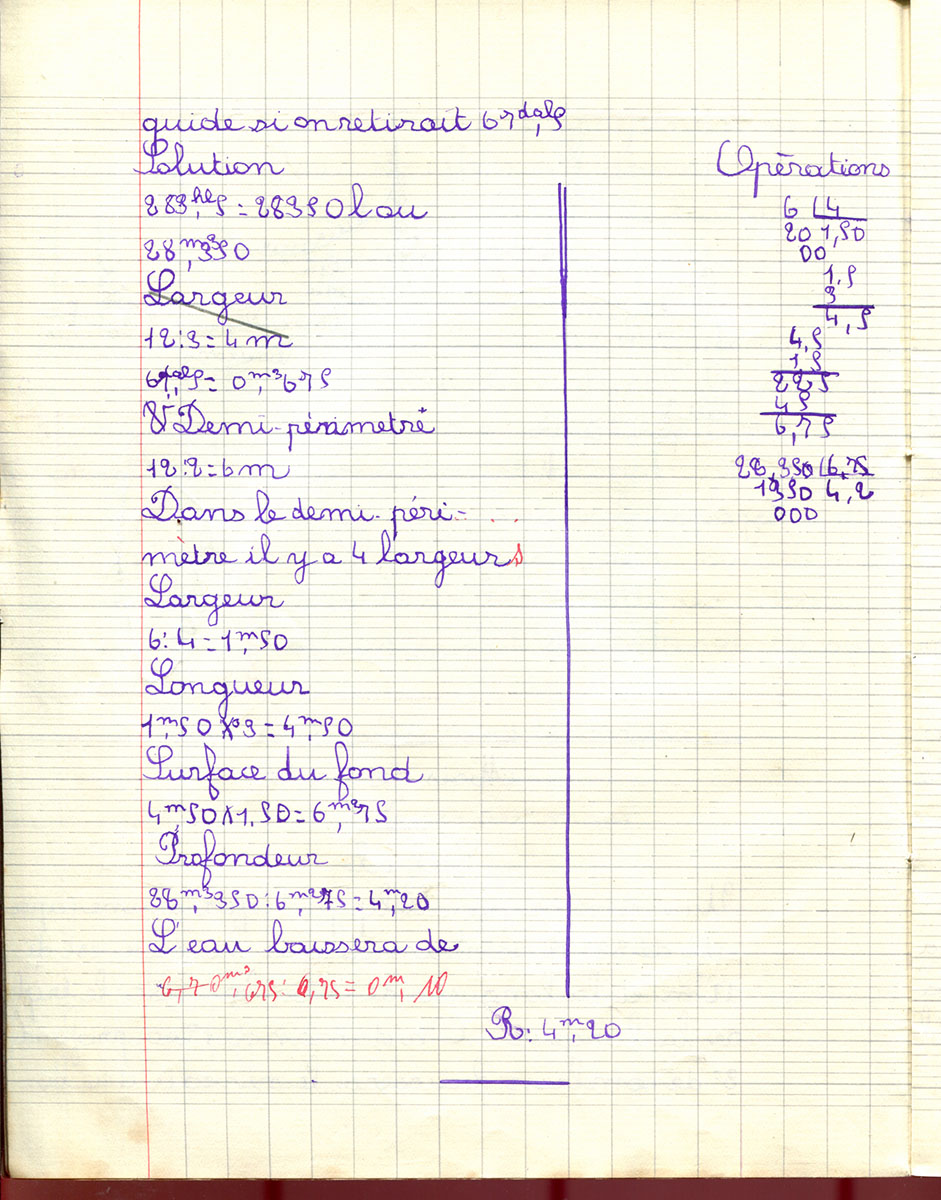 guide si on retirait 67 dal,5
Solution
283 hl,5 = 28350 l ou
28 m3,350
Largeur
12 : 3 = 4 m
67 dal,5 = 0 m3,675
Demi-périmètre
12 : 2 = 6 m
Dans le demi-péri-
mètre il y a 4 largeurs
Largeur
6 : 4 = 1 m,50
Longueur
1 m,50 x 3 = 4 m,50
Surface du fond
4 m,50 x 1,50 = 6 m2,75
Profondeur
28 m3,350 : 6 m2,75 = 4 m,20
L'eau baissera de
6,7 0 m3,675 : 6,75 = 0 m,10
R : 4 m,20
Opérations
6 4
20 1,50
00
1,5
3
4,5
4,5
1,5
225
45
6,75
28,350 6,75
1350 4,2
000